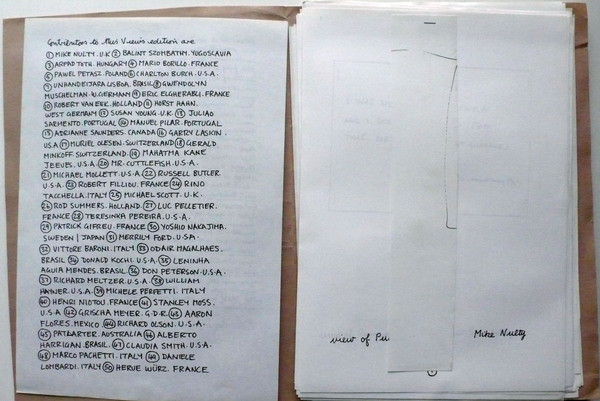 Contributors to this Views edition are
① MIKE NULTY. U.K ② BALINT SZOMBATHY. YUGOSLAVIA
③ ARPAD TOTH. HUNGARY ④ MARIO BORILLO. FRANCE
⑤ PAWEL PETASZ. POLAND ⑥ CHARLTON BURCH. U.S.A.
⑦ UNHANDEIJARA LISBOA. BRASIL ⑧ GWENDOLYN
MUSCHELMAN. W. GERMANY ⑨ ERIC ELGHERABLI. FRANCE
⑩ ROBERT VAN EEK. HOLLAND ⑪ HORST HAHN.
WEST GERMANY ⑫ SUSAN YOUNG. U.K ⑬ JULIAO
SARMENTO. PORTUGAL ⑭ MANUEL PILAR. PORTUGAL
⑮ ADRIANNE SAUNDERS. CANADA ⑯ GARRY LASKIN.
USA ⑰ MURIEL OLESEN. SWITZERLAND ⑱ GERALD
MINKOFF. SWITZERLAND. ⑲ MAHATMA KANE
JEEVES. U.S.A. ⑳ MR. CUTTLEFISH. U.S.A.
㉑ MICHAEL MOLLETT. U.S.A ㉒ RUSSELL BUTLER.
U.S.A. ㉓ ROBERT FILLIOU. FRANCE ㉔ RINO
TACCHELLA. ITALY ㉕ MICHAEL SCOTT. U.K.
㉖ ROD SUMMERS. HOLLAND. ㉗ LUC PELLETIER.
FRANCE ㉘ TERESINKA PEREIRA. U.S.A.
㉙ PATRICK GIFREU. FRANCE ㉚ YOSHIO NAKAJIMA.
SWEDEN | JAPAN ㉛ MERRILY FORD. U.S.A.
㉜ VITTORE BARONI. ITALY ㉝ ODAIR MAGALHAES.
BRASIL ㉞ DONALD KOCHU. U.S.A. ㉟ LENINHA
AGUIA MENDES. BRASIL ㊱ DON PETERSON. U.S.A.
㊲ RICHARD MELTZER. U.S.A. ㊳ WILLIAM
HAYNER. U.S.A. ㊴ MICHELE PERFETTI. ITALY
㊵ HENRI NIOTOU. FRANCE ㊶ STANLEY MOSS.
U.S.A ㊷ GRISCHA MEYER. G.D.R ㊸ AARON
FLORES. MEXICO. ㊹ RICHARD OLSON. U.S.A.
㊺ PAT LARTER. AUSTRALIA ㊻ ALBERTO
HARRIGAN. BRASIL. ㊼ CLAUDIA SMITH. U.S.A.
㊽ MARCO PACHETTI. ITALY ㊾ DANIELE
LOMBARDI. ITALY ㊿ HERVE WÜRZ. FRANCE
view of Pu Mike Nulty